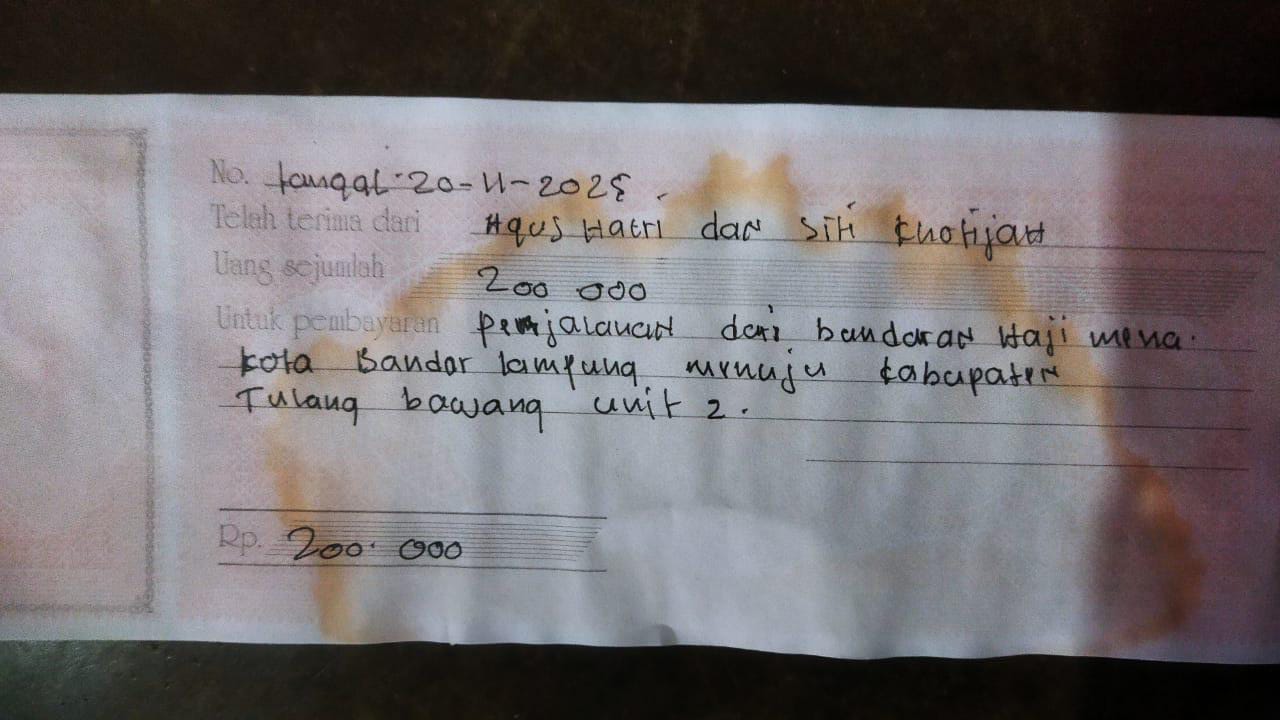 No. tanggal 20-11-2025.
Telah terima dari Agus Hatri dan Siti Khotijah
Uang sejumlah 200 000
Untuk pembayaran perjalanan dari bandaran Haji mena.
kota Bandar lampung menuju kabupaten
Tulang bawang unit 2.
Rp. 200.000